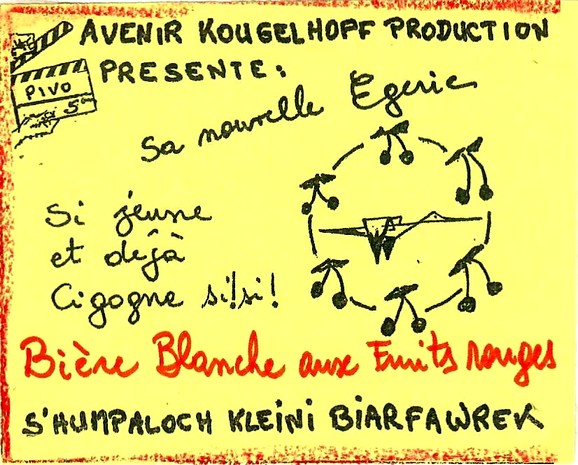 AVENIR KOUGELHOPF PRODUCTION
PRESENTE:
PIVO
5°
Sa nouvelle Egerie
Si jeune
et dejà
Cigogne si!si!
Bière Blanche aux Fruits rouges
S'HUMPALOCH KLEINI BIARFAWREK